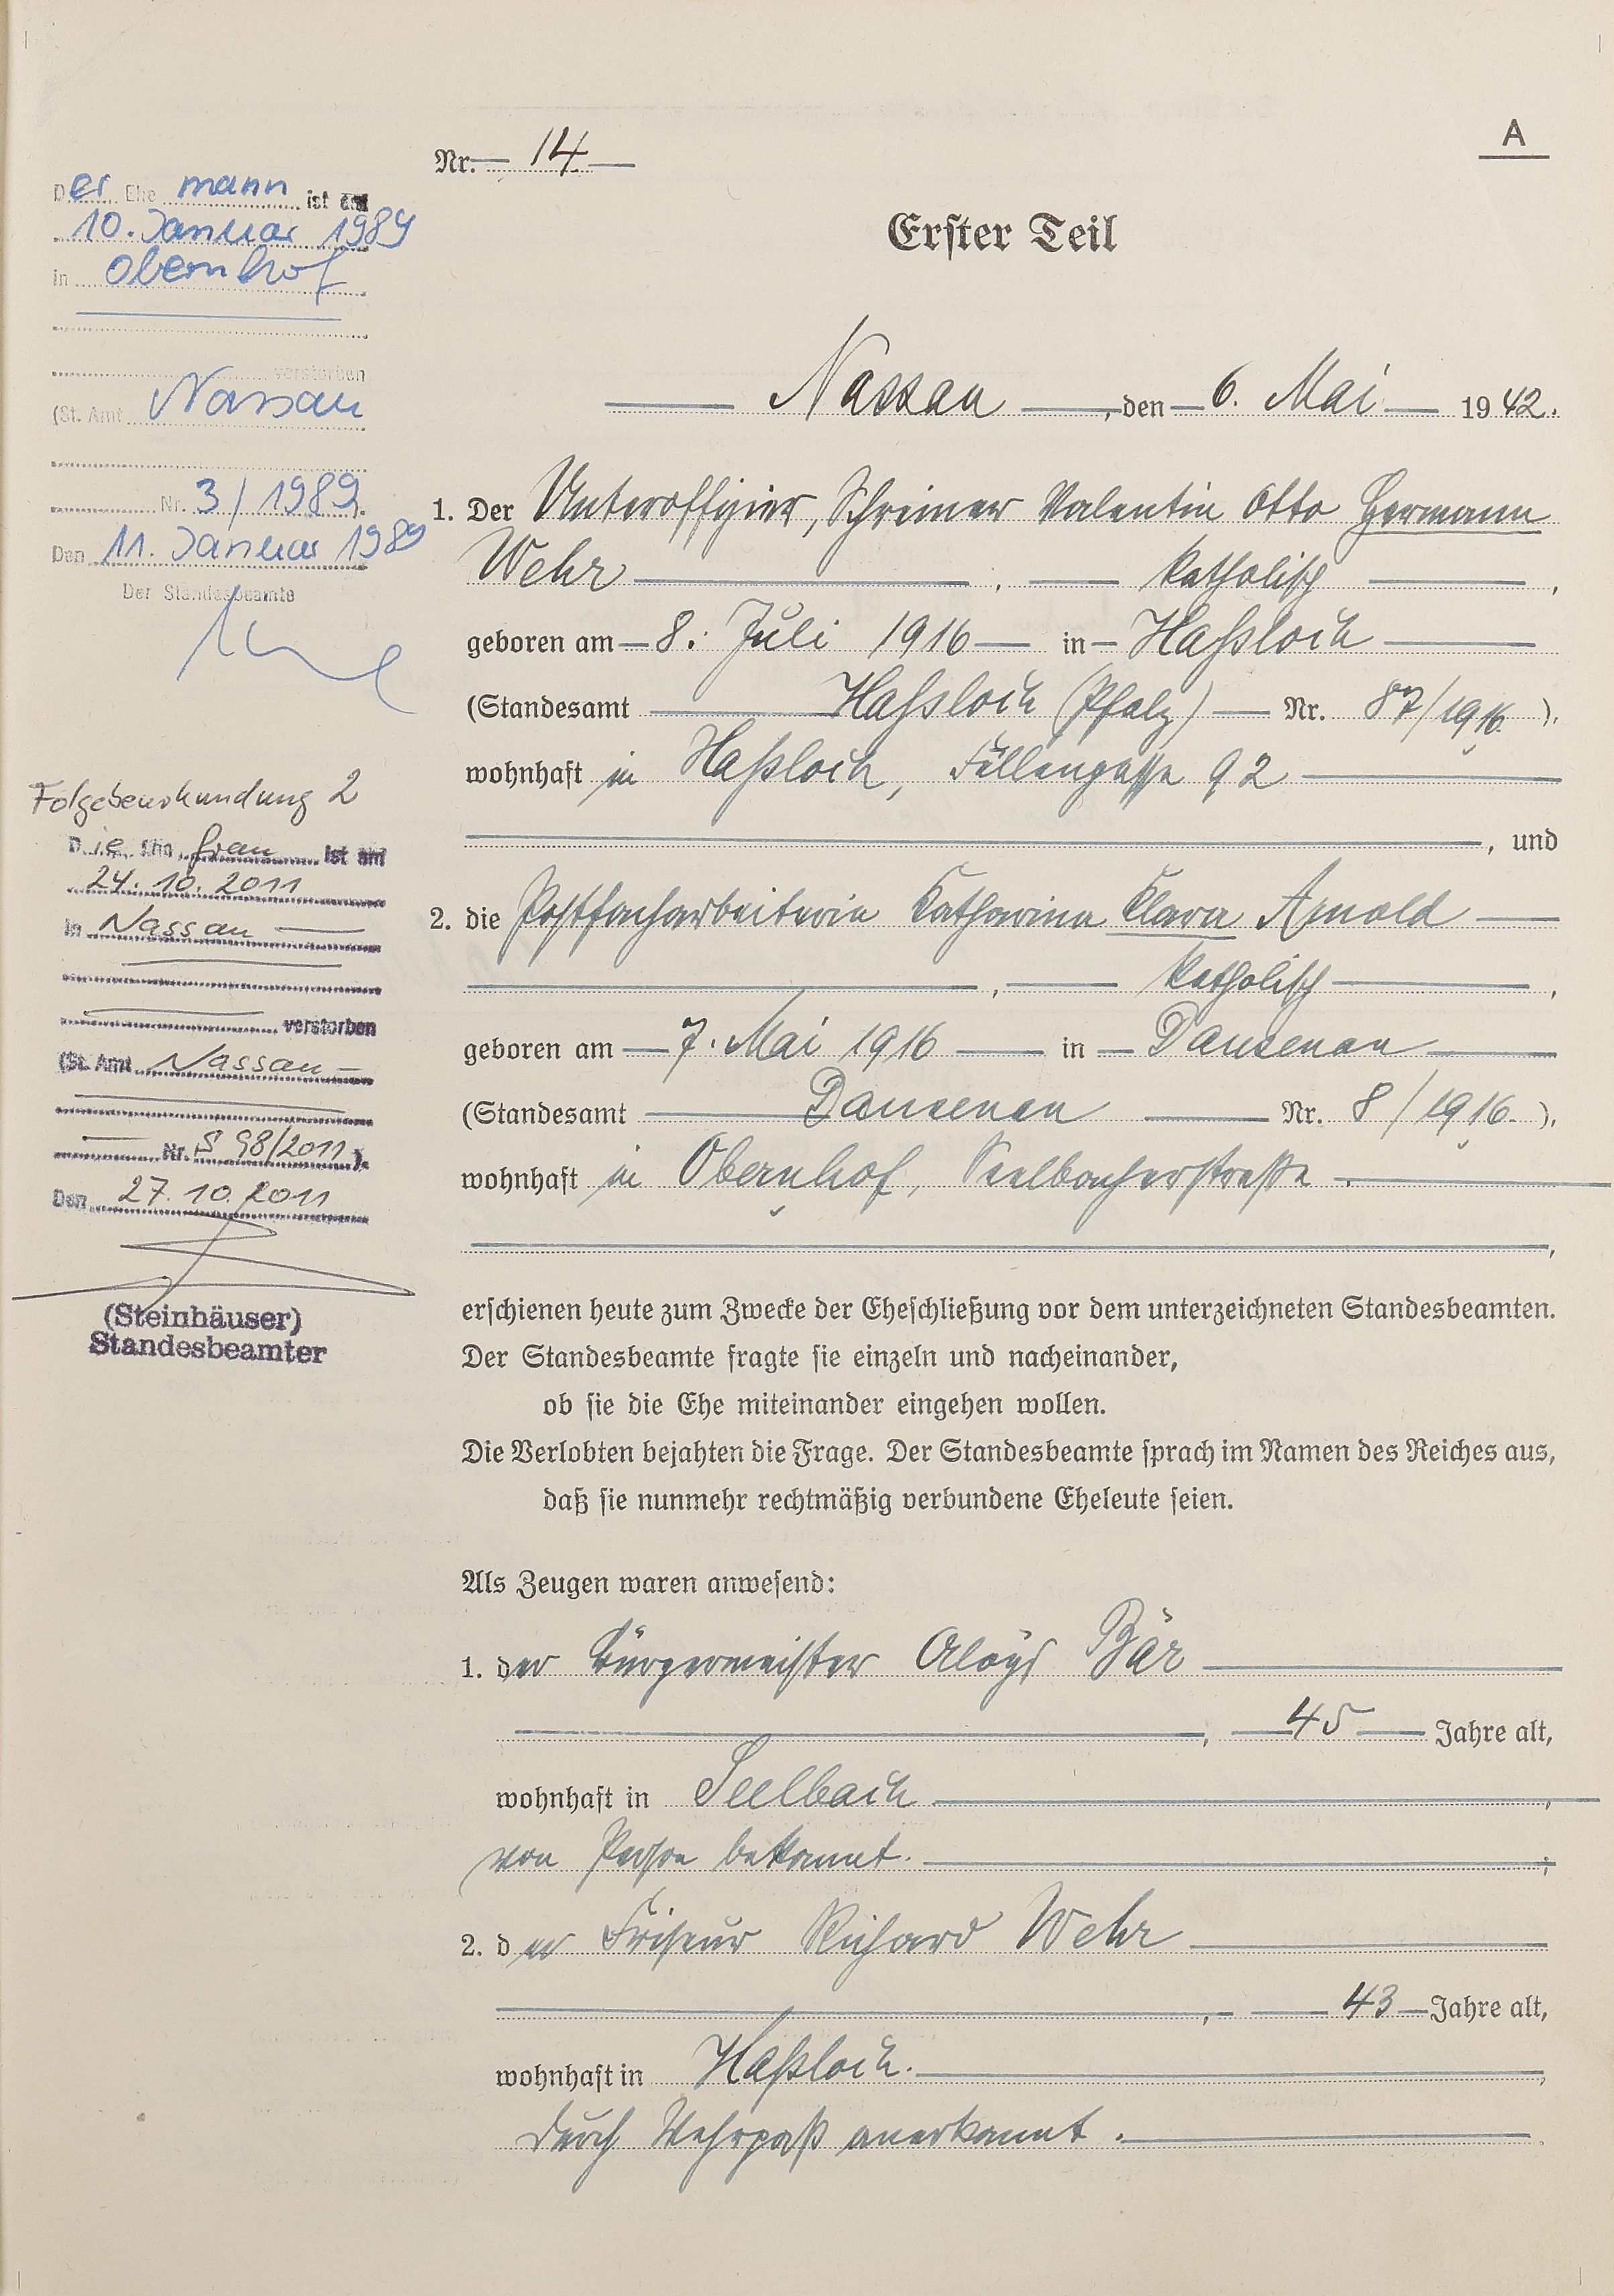 A
Nr. 14
Erster Teil
Nassau, den 6. Mai 1942.
1. Der Unteroffizier, Schreiner Valentin Otto Hermann
Wehr, katholisch,
geboren am 8. Juli 1916 in Haßloch
(Standesamt Haßloch (Pfalz) Nr. 87/1916.),
wohnhaft in Haßloch, Füllengasse 92
, und
2. die Postfacharbeiterin Katharina Klara Arnold
, katholisch,
geboren am 7. Mai 1916 in Dausenau
(Standesamt Dausenau Nr. 8/1916.),
wohnhaft in Obernhof, Seelbacherstraße.
,
erschienen heute zum Zwecke der Eheschließung vor dem unterzeichneten Standesbeamten.
Der Standesbeamte fragte sie einzeln und nacheinander,
ob sie die Ehe miteinander eingehen wollen.
Die Verlobten bejahten die Frage. Der Standesbeamte sprach im Namen des Reiches aus,
daß sie nunmehr rechtmäßig verbundene Eheleute seien.
Als Zeugen waren anwesend:
1. der Bürgermeister Aloys Bär
, 45 Jahre alt,
wohnhaft in Seelbach,
von Person bekannt.;
2. der Friseur Richard Wehr
, 43 Jahre alt,
wohnhaft in Haßloch.,
durch Wehrpaß anerkannt.
Der Ehemann ist am
10. Januar 1989
in Obernhof
verstorben
(St. Amt Nassau
Nr. 3/1989).
Den 11. Januar 1989
Der Standesbeamte
Folgebeurkundung 2
Die Ehefrau ist am
24.10.2011
in Nassau
verstorben
(St. Amt Nassau
Nr. S 98/2011).
Den 27.10.2011
(Steinhäuser)
Standesbeamter